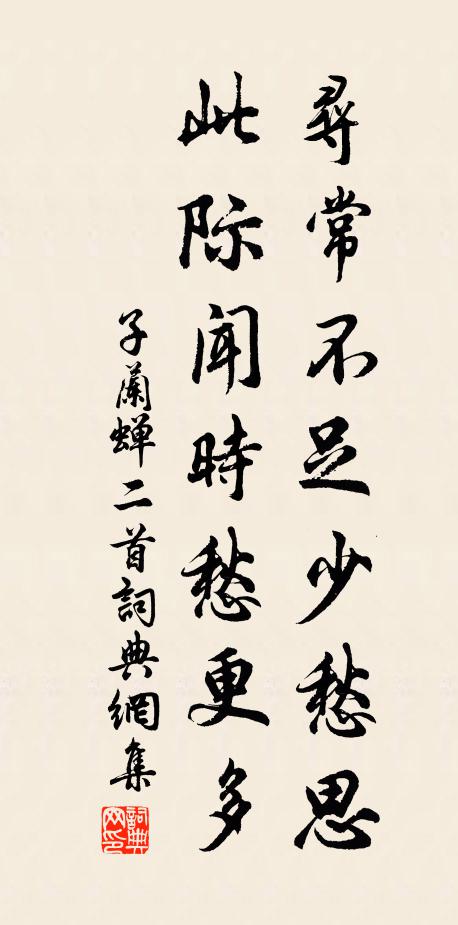 尋常不足少愁思
此际闻時愁更多
子蘭蟬二首詞典網集
詞典网印